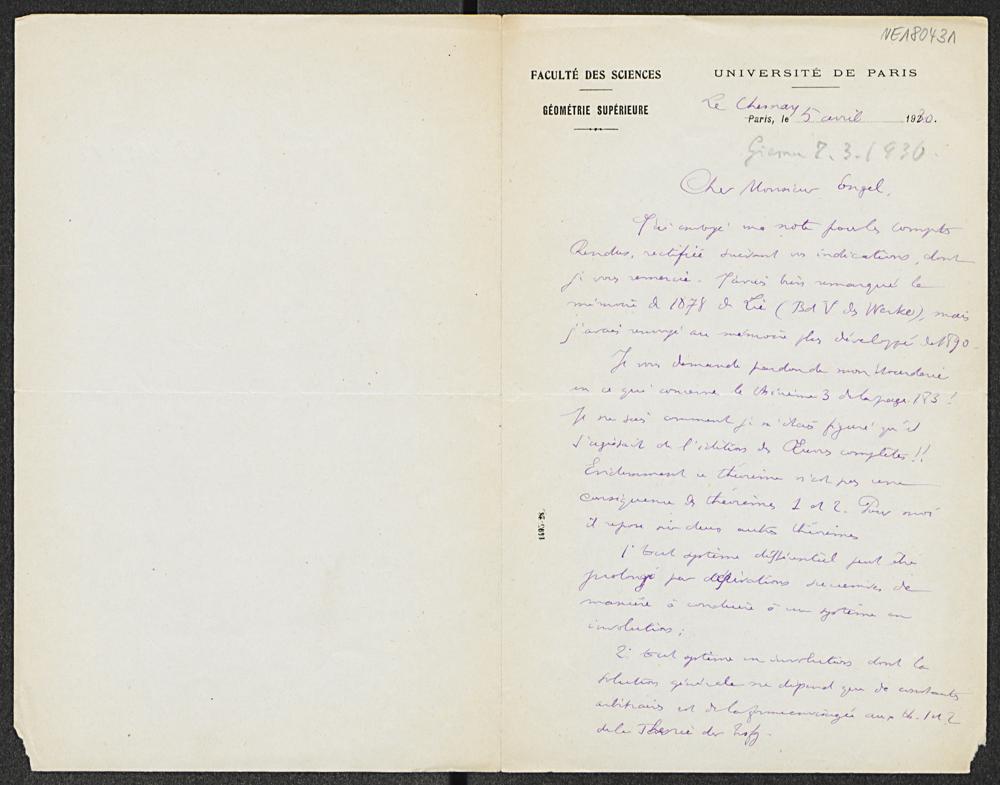 NE180431
FACULTÉ DES SCIENCES
UNIVERSITÉ DE PARIS
GÉOMÉTRIE SUPÉRIEURE
Le Chesnay
Paris, le 5 avril 1930.
3.1930.
Cher Monsieur Engel,
J'ai envoyé ma note pour les Comptes
Rendus, rectifiée suivant vos indications, dont
je vous remercie. J'avais bien remarqué le
mémoire de 1878 de Lie (Bd V des Werke), mais
j'avais renvoyé au mémoire plus développé de 1890.
Je vous demande pardon de mon étourderie
en ce qui concerne le théorème 3 de la page 173!
Je ne sais comment je m'étais figuré qu'il
s'agissait de l'édition des Œuvres complètes!!
Evidemment ce théorème n'est pas une
conséquence des théorèmes 1 et 2. Pour moi
il repose sur deux autres théorèmes
1° tout système différentiel peut être
prolongé par dérivations successives de
manière à conduire à un système en
involution;
2° tout système en involution dont la
solution générale ne dépend que de constantes
arbitraires est de la forme envisagée aux th. 1 et 2
de la Theorie der Trfg.
1495-28.